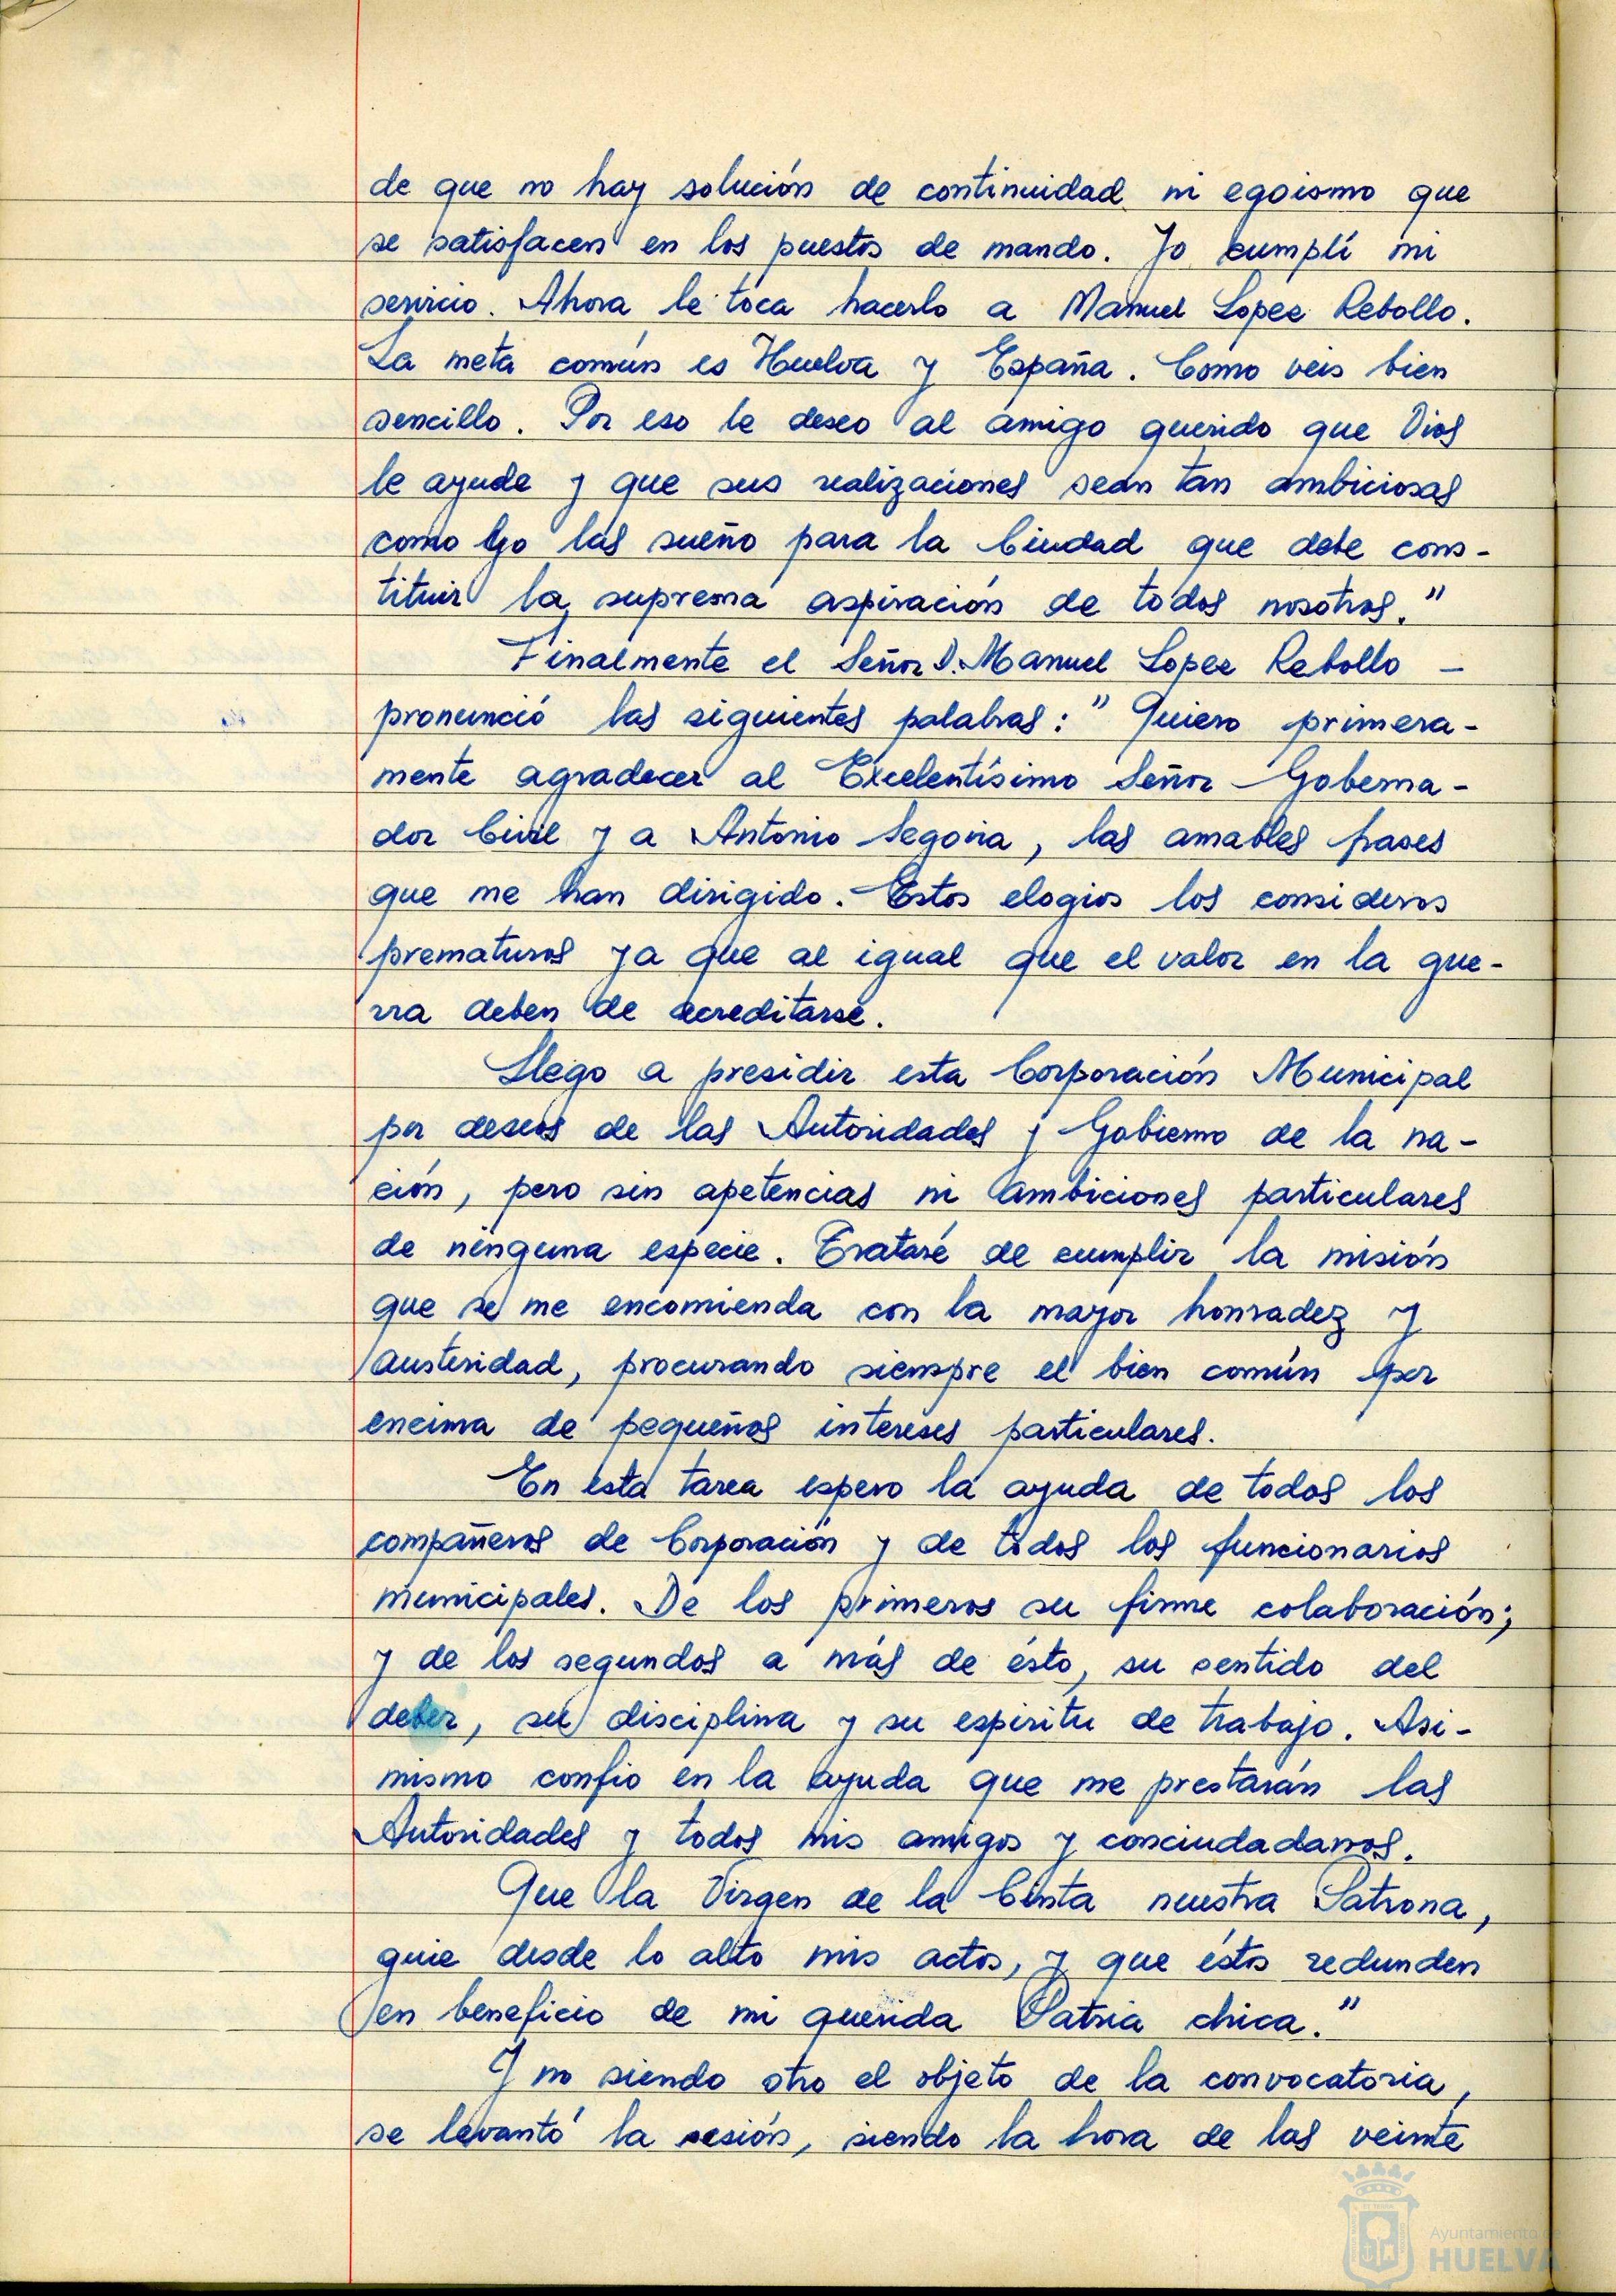 de que no hay solución de continuidad ni egoismo que
se satisfacen en los puestos de mando. Yo cumplí mi
servicio. Ahora le toca hacerlo a Manuel Lopez Rebollo.
La meta común es Huelva y España. Como veis bien
sencillo. Por eso le deseo al amigo querido que Dios
le ayude y que sus realizaciones sean tan ambiciosas
como yo las sueño para la Ciudad que debe cons-
tituir la suprema aspiración de todos nosotros."
Finalmente el Señor D. Manuel Lopez Rebollo -
pronunció las siguientes palabras: "Quiero primera-
mente agradecer al Excelentísimo Señor Goberna-
dor Civil y a Antonio Segovia, las amables frases
que me han dirigido. Estos elogios los consideros
prematuros ya que al igual que el valor en la gue-
rra deben de acreditarse.
Llego a presidir esta Corporación Municipal
por deseos de las Autoridades y Gobierno de la na-
ción, pero sin apetencias ni ambiciones particulares
de ninguna especie. Trataré de cumplir la misión
que se me encomienda con la mayor honradez y
austeridad, procurando siempre el bien común por
encima de pequeños intereses particulares.
En esta tarea espero la ayuda de todos los
compañeros de Corporación y de todos los funcionarios
municipales. De los primeros su firme colaboración;
y de los segundos a más de ésto, su sentido del
deber, su disciplina y su espiritu de trabajo. Asi-
mismo confio en la ayuda que me prestarán las
Autoridades y todos mis amigos y conciudadanos.
Que la Virgen de la Cinta nuestra Patrona,
guie desde lo alto mis actos, y que éstos redunden
en beneficio de mi querida Patria chica."
Y no siendo otro el objeto de la convocatoria,
se levantó la sesión, siendo la hora de las veinte
Ayuntamiento de
HUELVA